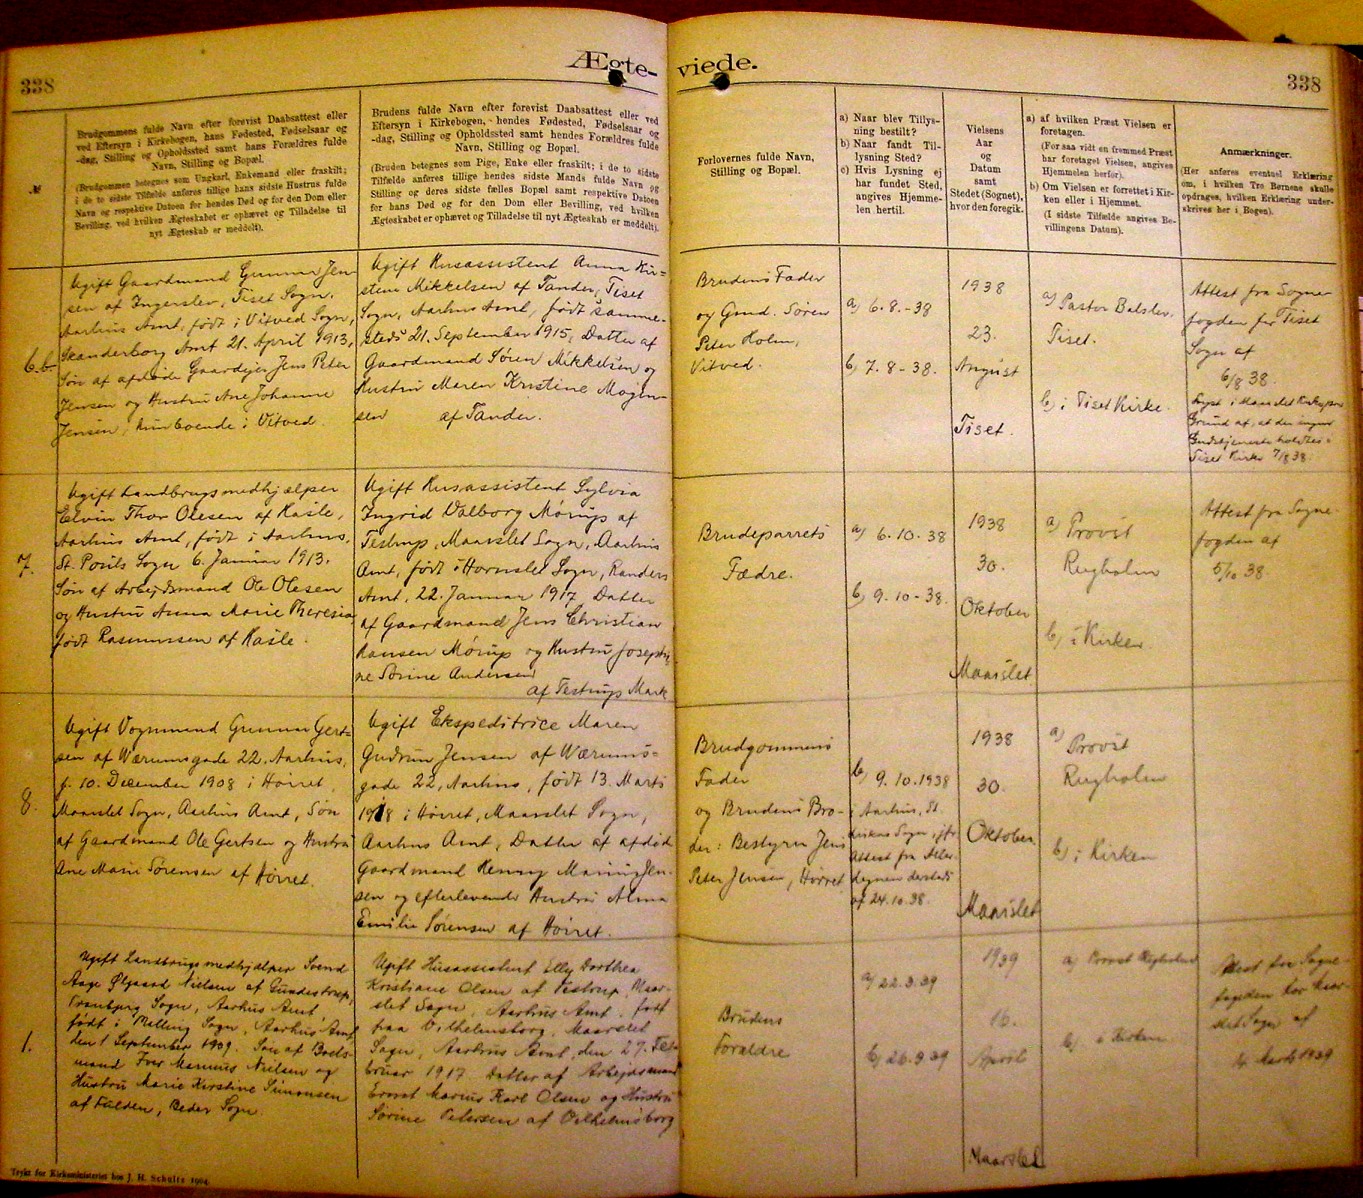 338
Ægte-
viede.
338
№
Brudgommens fulde Navn efter forevist Daabsattest eller
ved Eftersyn i Kirkebogen, hans Fødested, Fødselsaar og
-dag, Stilling og Opholdssted samt hans Forældres fulde
Navn, Stilling og Bopæl.
(Brudgommen betegnes som Ungkarl, Enkemand eller fraskilt;
i de to sidste Tilfælde anføres tillige hans sidste Hustrus fulde
Navn og respektive Datoen for hendes Død og for den Dom eller
Bevilling, ved hvilken Ægteskabet er ophævet og Tilladelse til
nyt Ægteskab er meddelt).
Brudens fulde Navn efter forevist Daabsattest eller ved
Eftersyn i Kirkebogen, hendes Fødested, Fødselsaar og
-dag, Stilling og Opholdssted samt hendes Forældres fulde
Navn, Stilling og Bopæl.
(Bruden betegnes som Pige, Enke eller fraskilt; i de to sidste
Tilfælde anføres tillige hendes sidste Mands fulde Navn og
Stilling og deres sidste fælles Bopæl samt respektive Datoen
for hans Død og for den Dom eller Bevilling, ved hvilken
Ægteskabet er ophævet og Tilladelse til nyt Ægteskab er meddelt).
Forlovernes fulde Navn,
Stilling og Bopæl.
a) Naar blev Tillys-
ning bestilt?
b) Naar fandt Til-
lysning Sted?
c) Hvis Lysning ej
har fundet Sted,
angives Hjemme-
len hertil.
Vielsens
Aar
og
Datum
samt
Stedet (Sognet),
hvor den foregik.
a) af hvilken Præst Vielsen er
foretagen.
(For saa vidt en fremmed Præst
har foretaget Vielsen, angives
Hjemmelen herfor).
b) Om Vielsen er forrettet i Kir-
ken eller i Hjemmet.
(I sidste Tilfælde angives Be-
villingens Datum).
Anmærkninger.
(Her anføres eventuel Erklæring
om, i hvilken Tro Børnene skulle
opdrages, hvilken Erklæring under-
skrives her i Bogen).
6.b.
Ugift Gaardmand Gunnar Jen-
sen af Ingerslev, Tiset Sogn,
Aarhus Amt, født i Vitved Sogn,
Skanderborg Amt 21. April 1913,
Søn af afdøde Gaardejer Jens Peter
Jensen og Hustru Ane Johanne
Jensen, hun boende i Vitved.
Ugift Husassistent Anna Kir-
stine Mikkelsen af Tander, Tiset
Sogn, Aarhus Amt, født samme-
steds 21. September 1915, Datter af
Gaardmand Søren Mikkelsen og
Hustru Maren Kristine Mogen-
sen af Tander.
Brudens Fader
og Gmd. Søren
Peter Holm,
Vitved.
a) 6.8.-38
b) 7.8-38.
1938
23.
August
Tiset.
a) Pastor Balslev,
Tiset.
b) i Tiset Kirke.
Attest fra Sogne-
fogden for Tiset
Sogn af
6/8 38.
Lyst i Maarslet Kirke paa
Grund af, at der ingen
Gudstjeneste holdtes i
Tiset Kirke 7/8 38.
7.
Ugift Landbrugsmedhjælper
Elvin Thor Olesen af Kasle,
Aarhus Amt, født i Aarhus,
St. Pouls Sogn 6. Januar 1913.
Søn af Arbejdsmand Ole Olesen
og Hustru Anna Marie Theresia
født Rasmussen af Kasle.
Ugift Husassistent Sylvia
Ingrid Valborg Mørup af
Testrup, Maarslet Sogn, Aarhus
Amt, født i Hornslet Sogn, Randers
Amt, 22. Januar 1917, Datter
af Gaardmand Jens Christian
Hansen Mørup og Hustru Josephi-
ne Sørine Andersen
af Testrup Mark
Brudeparrets
Fædre.
a) 6.10.38
b) 9.10-38.
1938
30.
Oktober
Maarslet
a) Provst
Rugholm
b) i Kirken
Attest fra Sogne-
fogden af
5/10 38.
8.
Ugift Vognmand Gunnar Gert-
sen af Wærumsgade 22, Aarhus,
f. 10. December 1908 i Hørret,
Maarslet Sogn, Aarhus Amt, Søn
af Gaardmand Ole Gertsen og Hustru
Ane Marie Sørensen af Hørret.
Ugift Ekspeditrice Maren
Gudrun Jensen af Wærums-
gade 22, Aarhus, født 13. Marts
1918 i Hørret, Maarslet Sogn,
Aarhus Amt, Datter af afdøde
Gaardmand Henny Marius Jen-
sen og efterlevende Hustru Alma
Emilie Sørensen af Hørret.
Brudgommens
Fader
og Brudens Bro-
der: Bestyrer Jens
Peter Jensen, Hørret
b) 9.10.1938
i Aarhus, St.
Lukas Sogn, jfr.
Attest fra
degnen dersteds
af 24.10.38.
1938
30.
Oktober
Maarslet
a) Provst
Rugholm
b) i Kirken
1.
Ugift Landbrugsmedhjælper Svend
Aage Ølgaard Nielsen af Gundestrup,
Tranbjerg Sogn, Aarhus Amt
født i Malling Sogn, Aarhus Amt
den 1 September 1909. Søn af Boels-
mand Iver Marinus Nielsen og
Hustru Marie Kirstine Simonsen
af Fulden, Beder Sogn.
Ugift Husassistent Elly Dorthea
Kristiane Olsen af Testrup, Maar-
slet Sogn, Aarhus Amt, født
paa Vilhelmsborg, Maarslet
Sogn, Aarhus Amt, den 27. Fe-
bruar 1917 Datter af Arbejdsmand
Ernst Marius Karl Olsen og Hustru
Sørine Petersen af Vilhelmsborg
Brudens
Forældre
a) 22.3.39
b) 26.3.39
1939
16.
April
Maarslet
a) Provst Rugholm
b) i Kirken
Attest fra Sogne-
fogden for Maar-
slet Sogn af
Marts 1939
Trykt for Kirkeministeriet hos J. H. Schultz 1904.